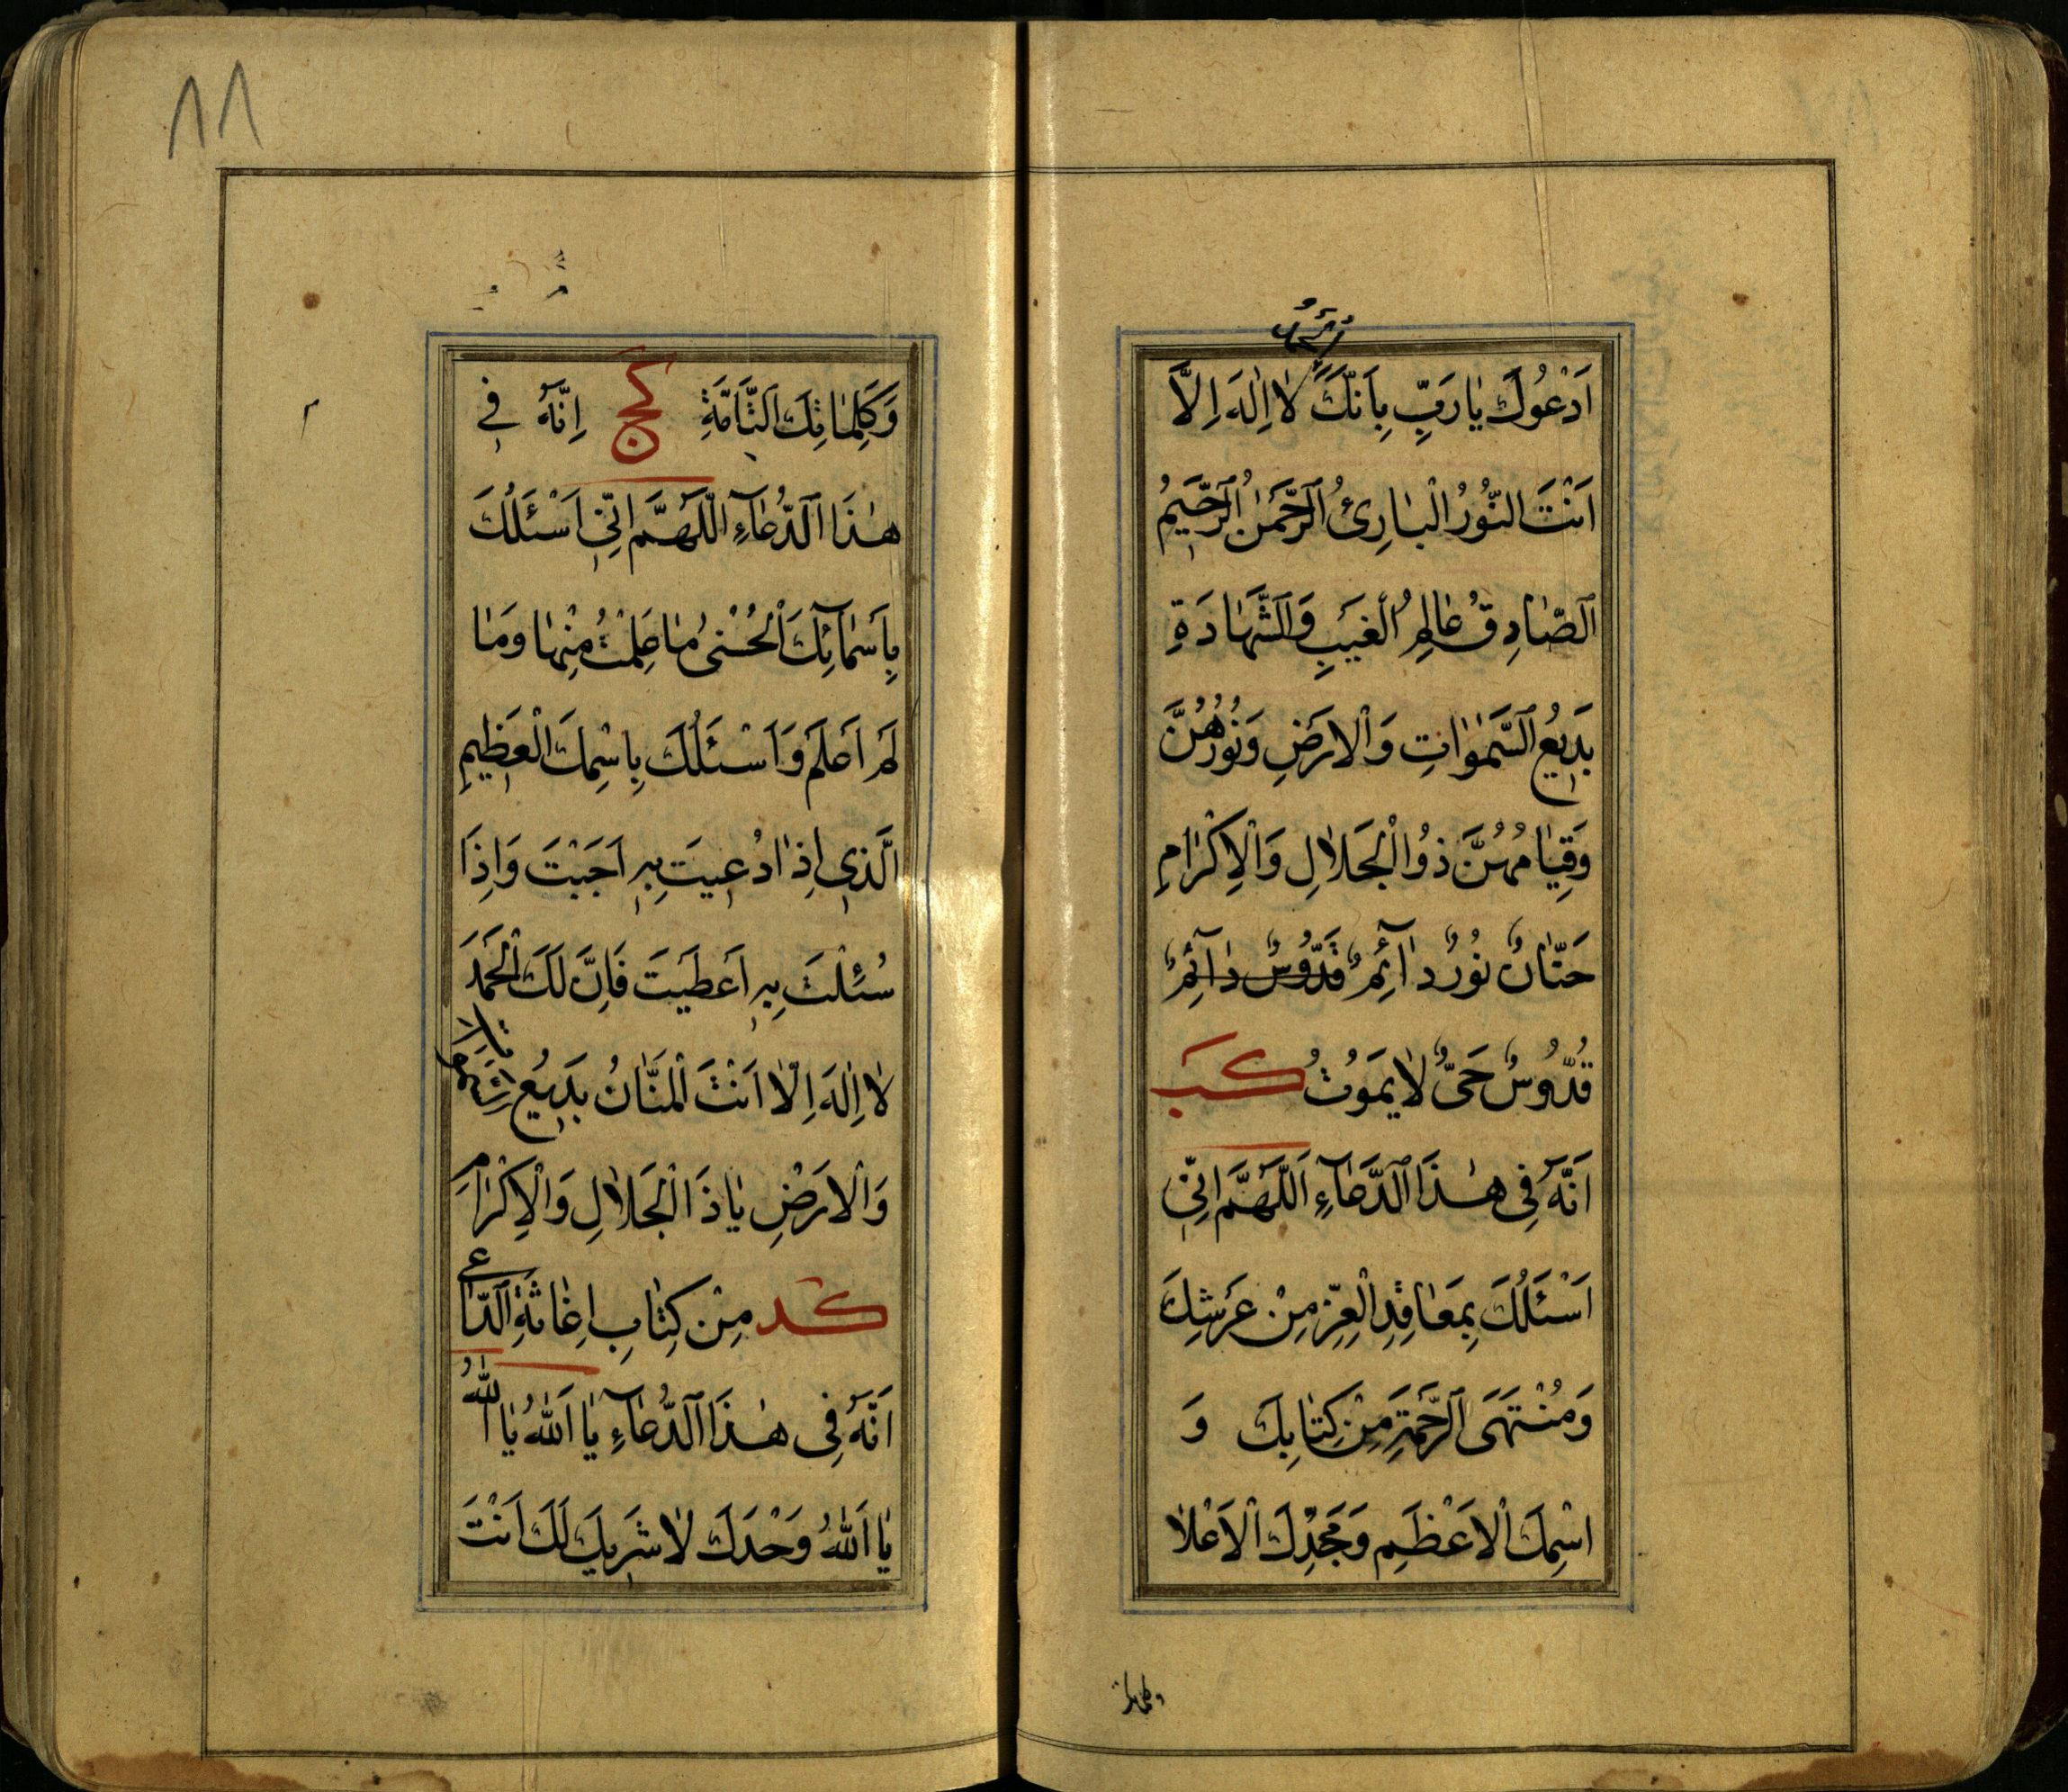 اَدْعُوكَ يٰا رَبِّ بِاَنَّكَ لٰا اِلٰهَ اِلَّا
اَنْتَ النُّورُ الْبٰارِئُ الرَّحْمٰنُ الرَّحِيمُ
الصّٰادِقُ عٰالِمُ الْغَيْبِ وَالشَّهٰادَةِ
بَدِيعُ السَّمٰوٰاتِ وَالْاَرْضِ وَنُورُهُنَّ
وَقِيٰامُهُنَّ ذُو الْجَلٰالِ وَالْاِكْرٰامِ
حَنّٰانٌ نُورٌ دٰآئِمٌ قَدُّوسٌ دٰآئِمٌ
قُدُّوسٌ حَىٌّ لٰا يَمَوُتُ كب
اَنَّهُ فِى هٰذَا الدُّعٰآءِ اَللّٰهُمَّ اِنِّى
اَسْئَلُكَ بِمَعٰاقِدِ الْعِزِّ مِنْ عَرْشِكَ
وَمُنْتَهَى الرَّحْمَةِ مِنْ كِتٰابِكَ وَ
اسْمِكَ الْاَعْظَمِ وَجَدِّكَ الْاَعْلٰا
وكلماتك
٨٨
وَكَلِمٰاتِكَ التّٰآمَّةِ كج اِنَّهُ فِى
هٰذَا الدُّعٰآءِ اللّٰهُمَّ اِنِّى اَسْئَلُكَ
بِاَسْمٰآئِكَ الْحُسْنىٰ مٰا عَلِمْتُ مِنْهٰا وَمٰا
لَمْ اَعْلَمْ وَاَسْئَلُكَ بِاسْمِكَ الْعَظِيمِ
الَّذِى اِذٰا دُعِيتَ بِهِ اَجَبْتَ وَاِذَا
سُئِلْتَ بِهِ اَعْطَيْتَ فَاِنَّ لَكَ الْحَمْدَ
لٰا اِلٰهَ اِلّٰا اَنْتَ الْمَنّٰانُ بَدِيعُ السَّمٰوٰاتِ
وَالْاَرْضِ يٰا ذَا الْجَلٰالِ وَالْاِكْرٰامِ
كد مِنْ كِتٰابِ اِغٰاثَةِ الدّٰاعِى
اَنَّهُ فِى هٰذَا الدُّعٰآءِ يٰا اَللّٰهُ يٰا اَللّٰهُ
يٰا اَللّٰهُ وَحْدَكَ لٰا شَرِيكَ لَكَ اَنْتَ